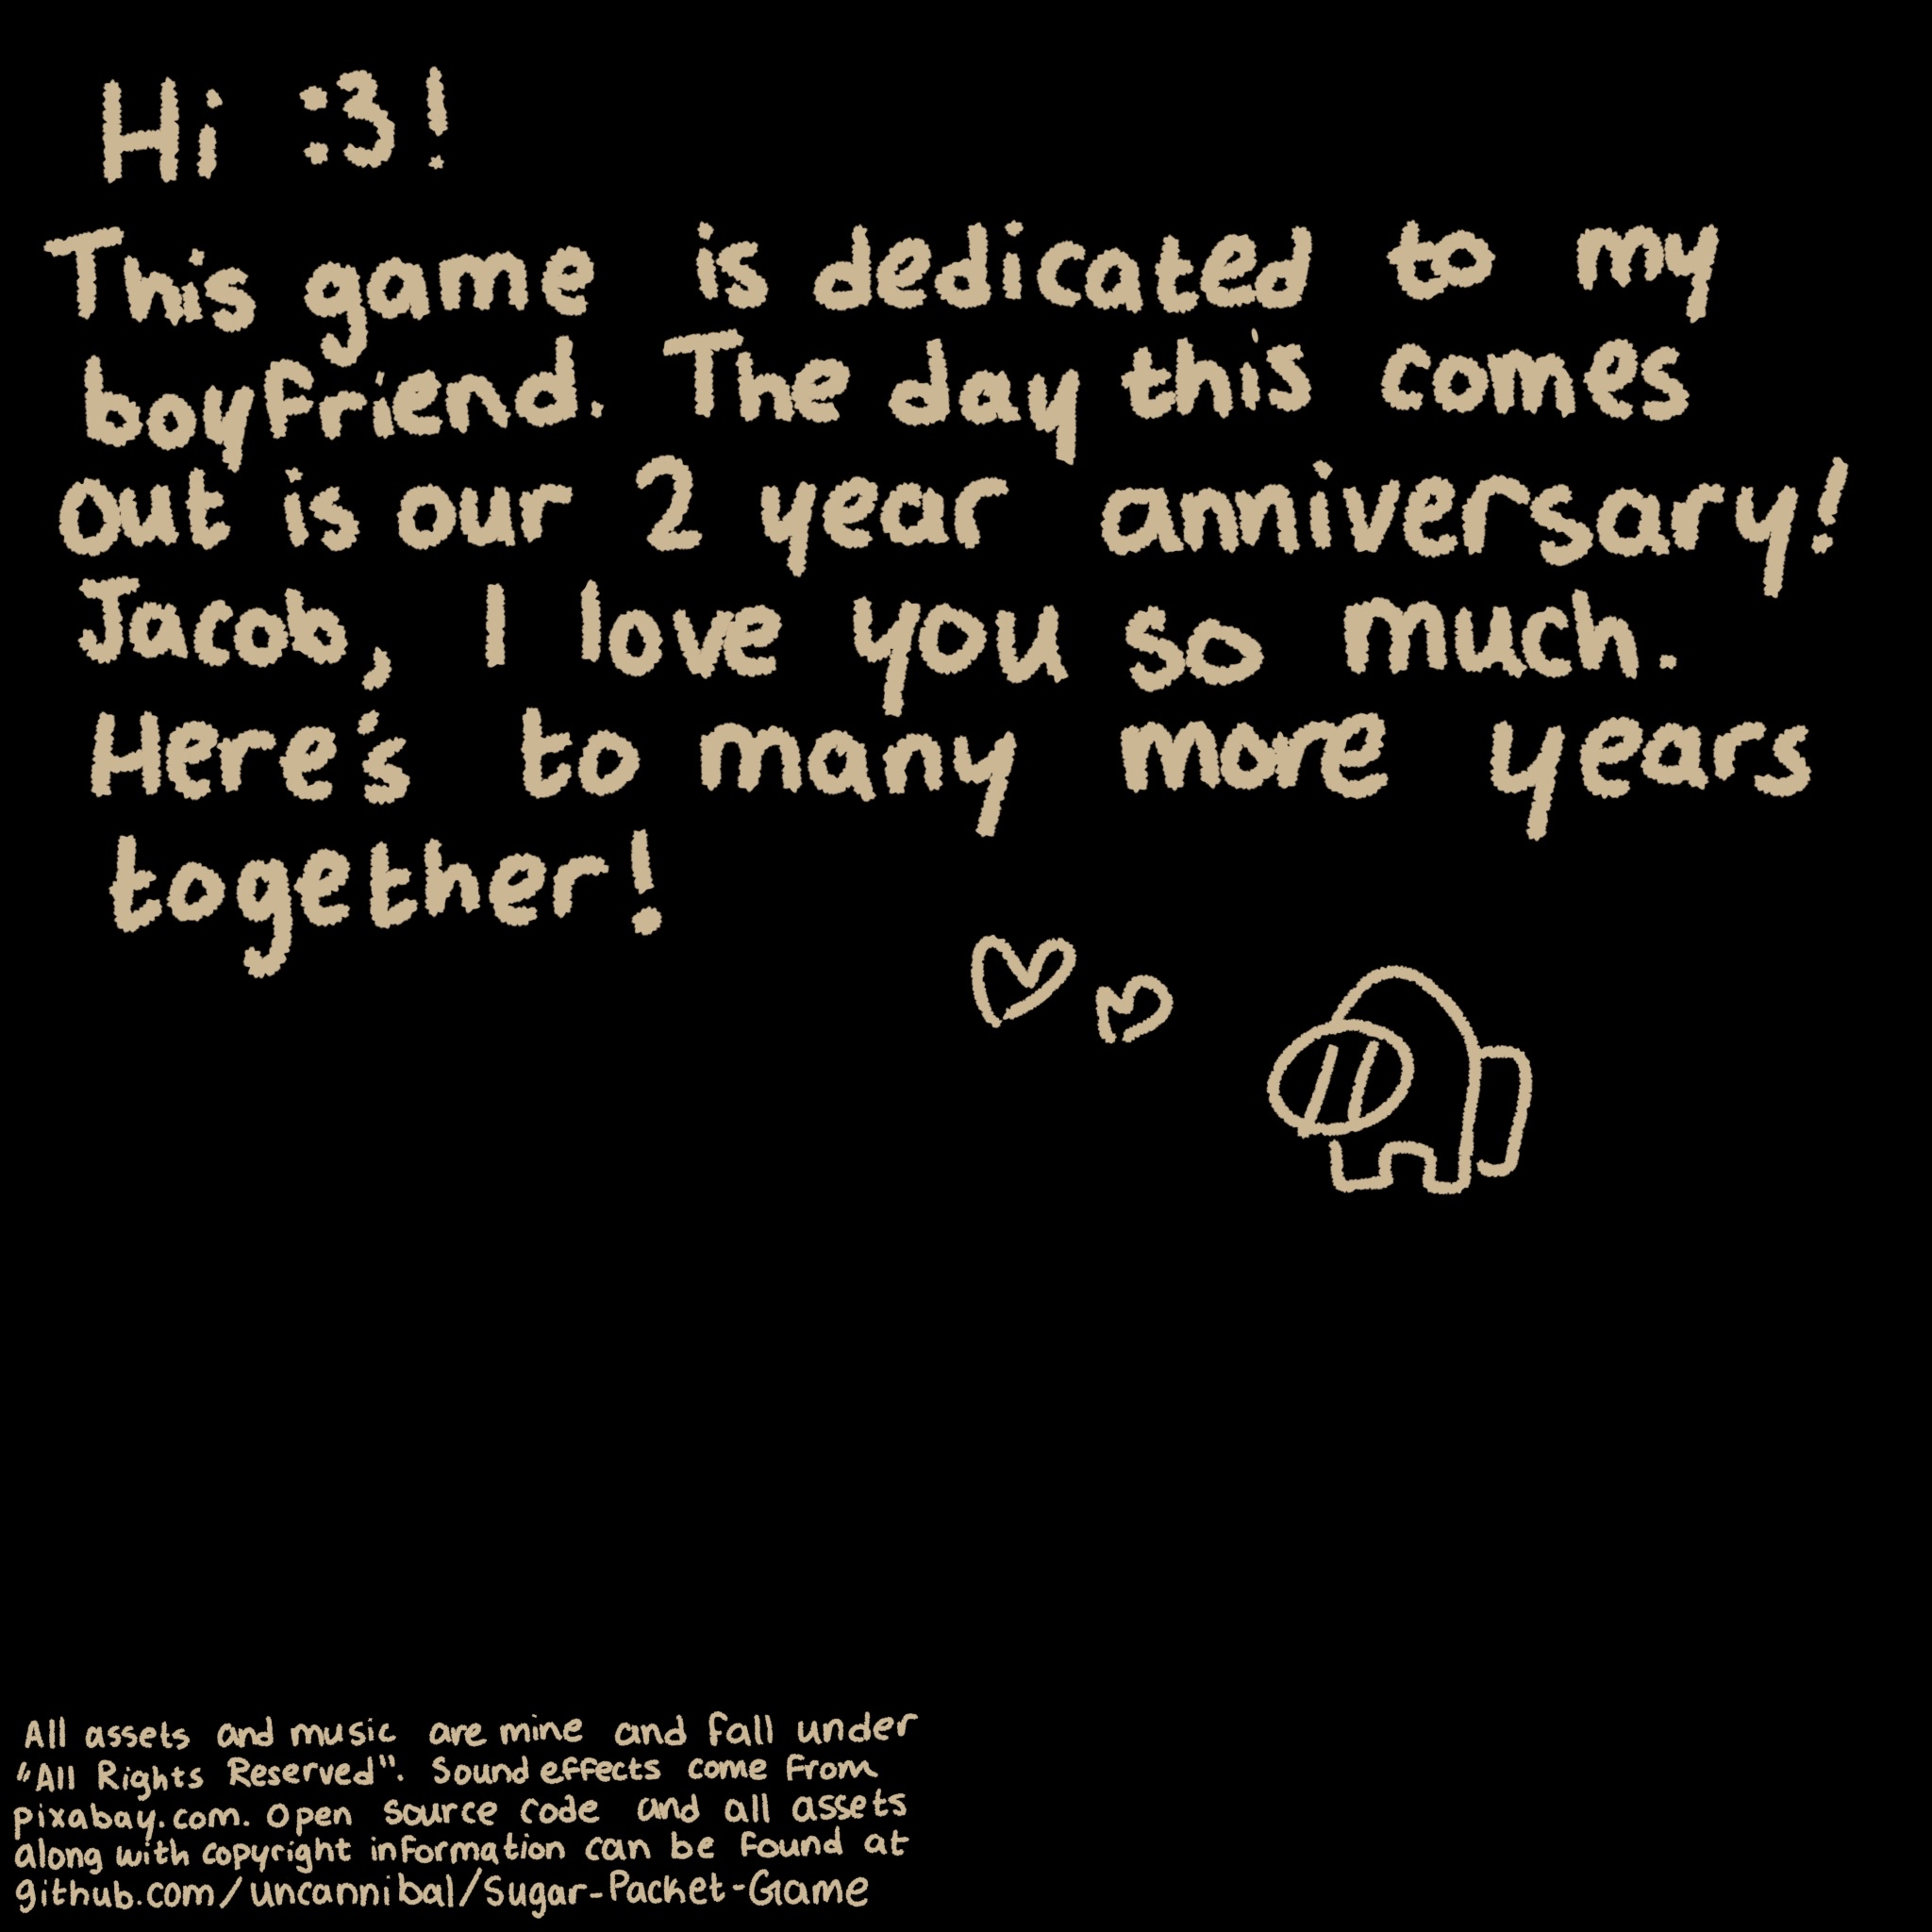 Hi :3!
This game is dedicated to my
boyfriend. The day this comes
out is our 2 year anniversary!
Jacob, I love you so much.
Here's to many more years
together!
All assets and music are mine and fall under
"All Rights Reserved". Sound effects come from
pixabay.com. Open source code and all assets
along with copyright information can be found at
github.com/uncannibal/Sugar-Packet-Game